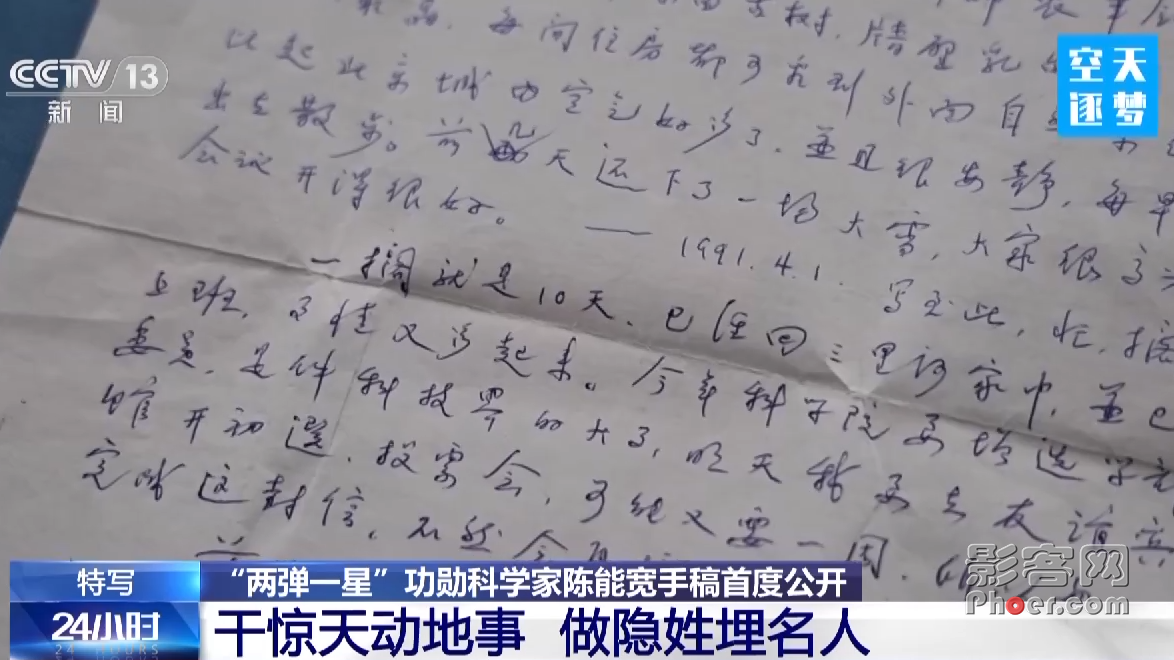 每间住房都可看到外面自
比起北京城内空气好多了，並且很安静，每早
出去散步。前几天还下了一场大雪，大家很高兴
会议开得很好。
—— 1991.4.1. 写至此，忙，搁
一搁就是10天，已经回三里河家中，並已
上班，事情又多起来。今年科学院要增选学部
委员，是件科技界的大事，明天我要去友谊宾
馆开初选，投票会，可能又要一周，
完成这封信，不然会
CCTV 13
新闻
空天
逐梦
特写
“两弹一星”功勋科学家陈能宽手稿首度公开
24小时
24 HOURS
干惊天动地事 做隐姓埋名人
影客网
Phoer.com